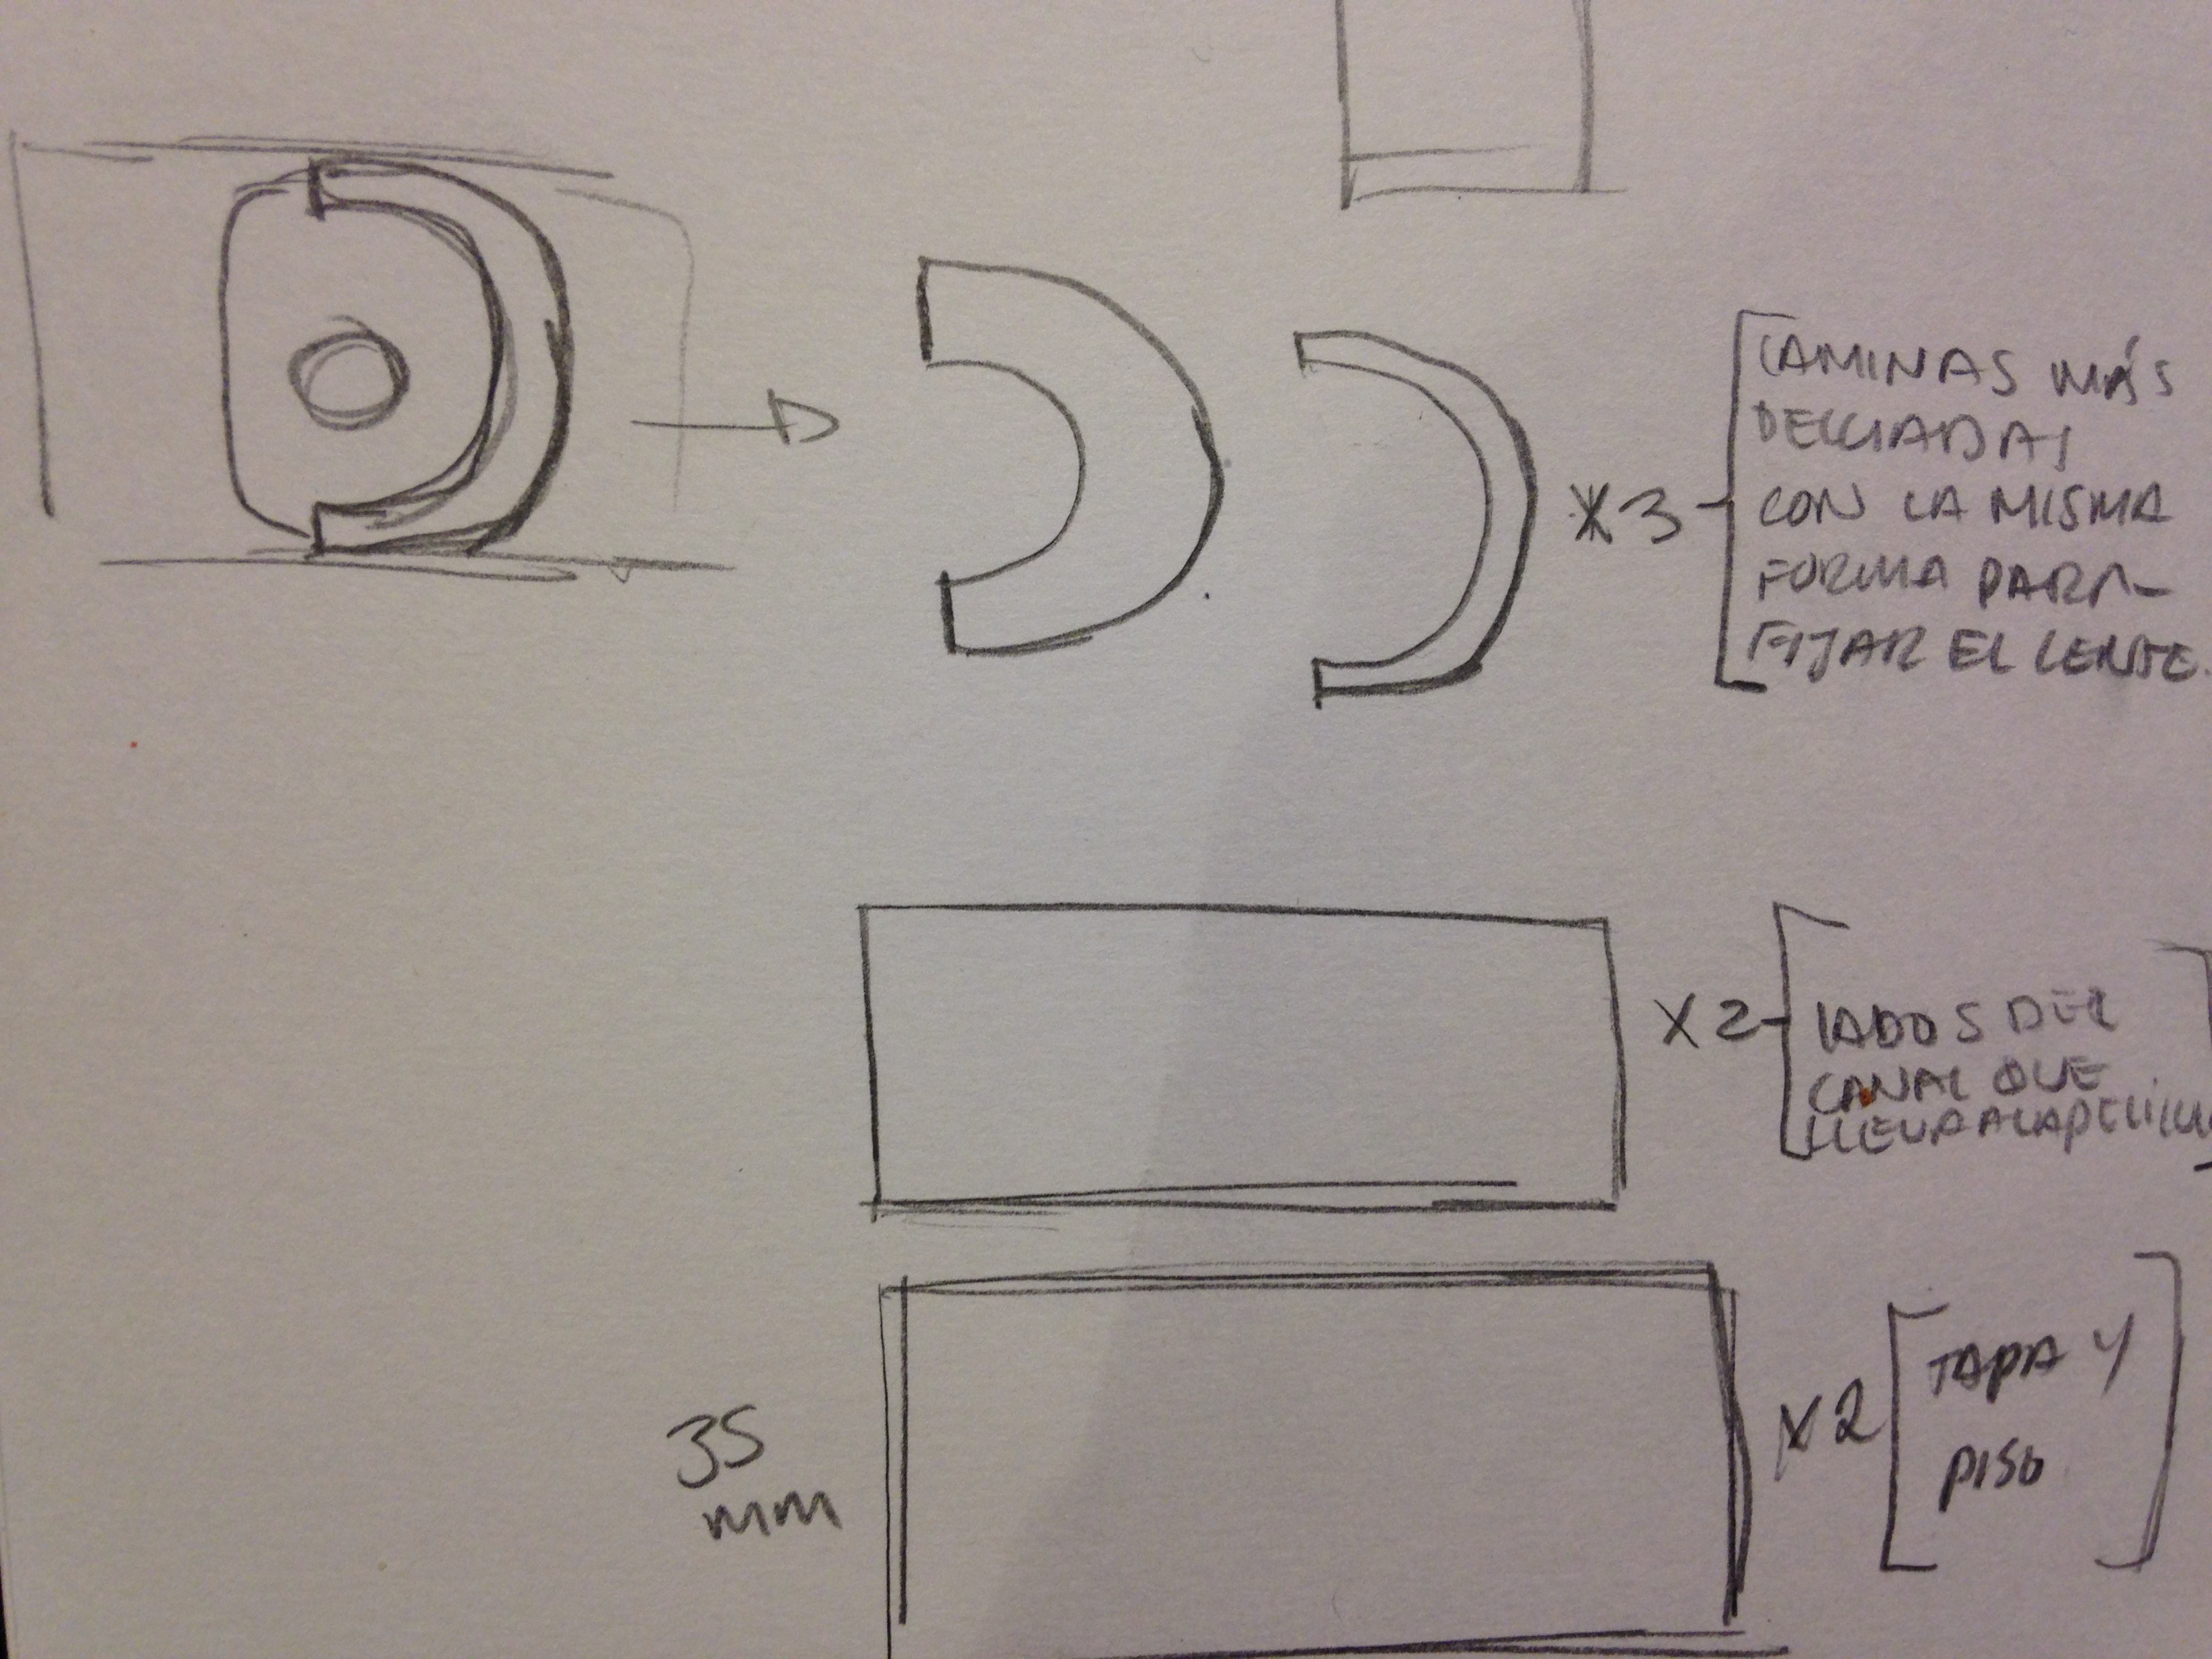 X3
LAMINAS MÁS
DELGADAS
CON LA MISMA
FORMA PARA
FIJAR EL LENTE.
X2
LADOS DEL
CANAL QUE
LLEVA A LA
35
mm
X2
TAPA Y
PISO